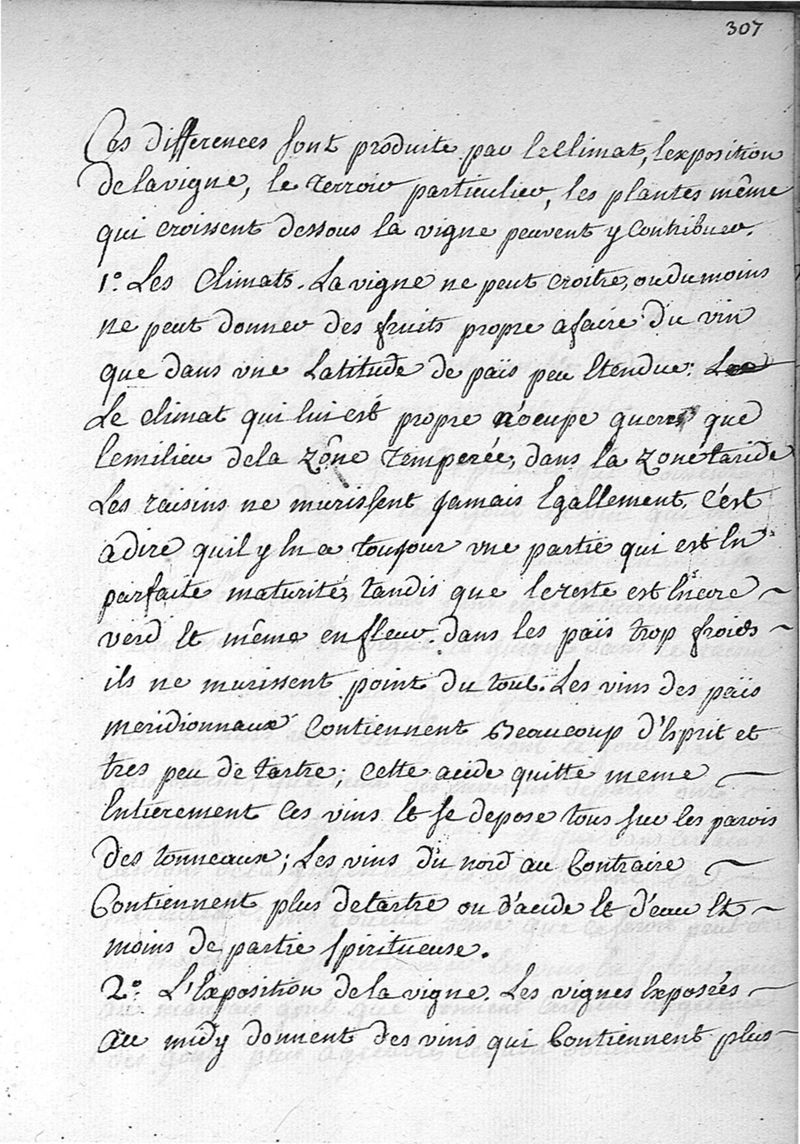 307
Ces differences sont produite par le Climat, l'exposition
de la vigne, le terroir particulier, les plantes même
qui croissent dessous la vigne peuvent y Contribuer.
1.° Les Climats. La vigne ne peut croitre, ou du moins
ne peut donner des fruits propre a faire du vin
que dans une Latitude de païs peu Etendue:
Le climat qui lui est propre n'ocupe queres que
le milieu de la zône temperée, dans la zone taride
Les raisins ne murissent jamais Egallement, c'est
a dire quil y En a toujour une partie qui est En
parfaite maturité, tandis que le reste est Encore
verd Et même en fleur. dans les païs trop froids
ils ne murissent point du tout. Les vins des païs
meridionnaux Contiennent Beaucoup d'Esprit et
tres peu de tartre; Cette acide quitte meme
Entierement Ces vins Et se depose tous sur les parois
des tonneaux; Les vins du nord au Contraire
Contiennent plus de tartre ou d'acide Et d'eau Et
moins de partie spiritueuse.
2.° L'Exposition de la vigne. Les vignes Exposées
au midy donnent des vins qui Contiennent plus